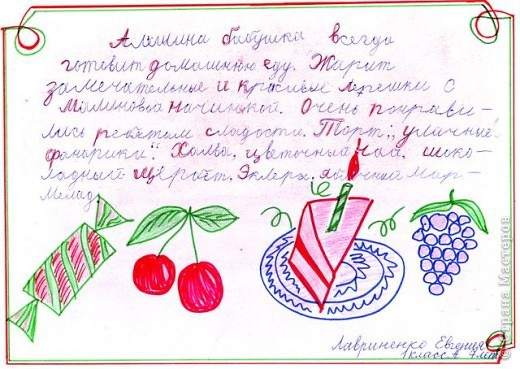 Алёшина бабушка всегда
готовит домашнюю еду. Жарит
замечательные и красивые лепешки с
малиновой начинкой. Очень понрави-
лись ребятам сладости. Торт "уличные
фонарики". Халва, цветочный чай, шоко-
ладный щербет. Эклеры, яблочный мар-
мелад.
Лавриненко Евгения
1 класс А 7 лет
Страна Мастеров